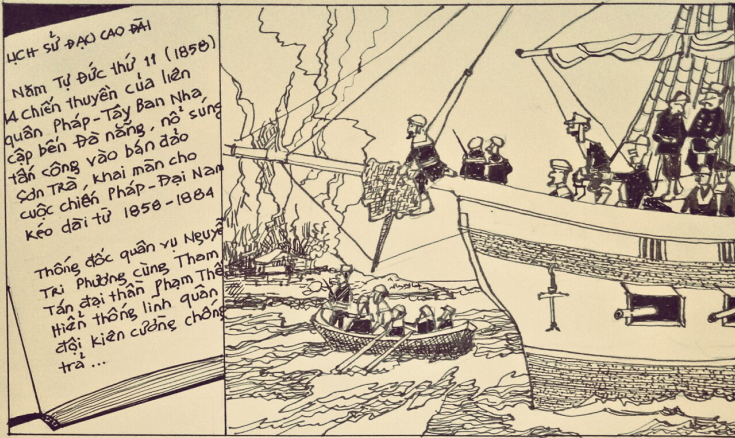 LỊCH SỬ ĐẠO CAO ĐÀI
Năm Tự Đức thứ 11 (1858)
14 chiến thuyền của liên
quân Pháp-Tây Ban Nha
cập bến Đà nẵng, nổ súng
tấn công vào bán đảo
Sơn Trà, khai màn cho
cuộc chiến Pháp-Đại Nam
kéo dài từ 1858-1884
Thống đốc quân vụ Nguyễ
Tri Phương cùng Tham
Tán đại thần Phạm Thế
Hiển thống lĩnh quân
đội kiên cường chống
trả...